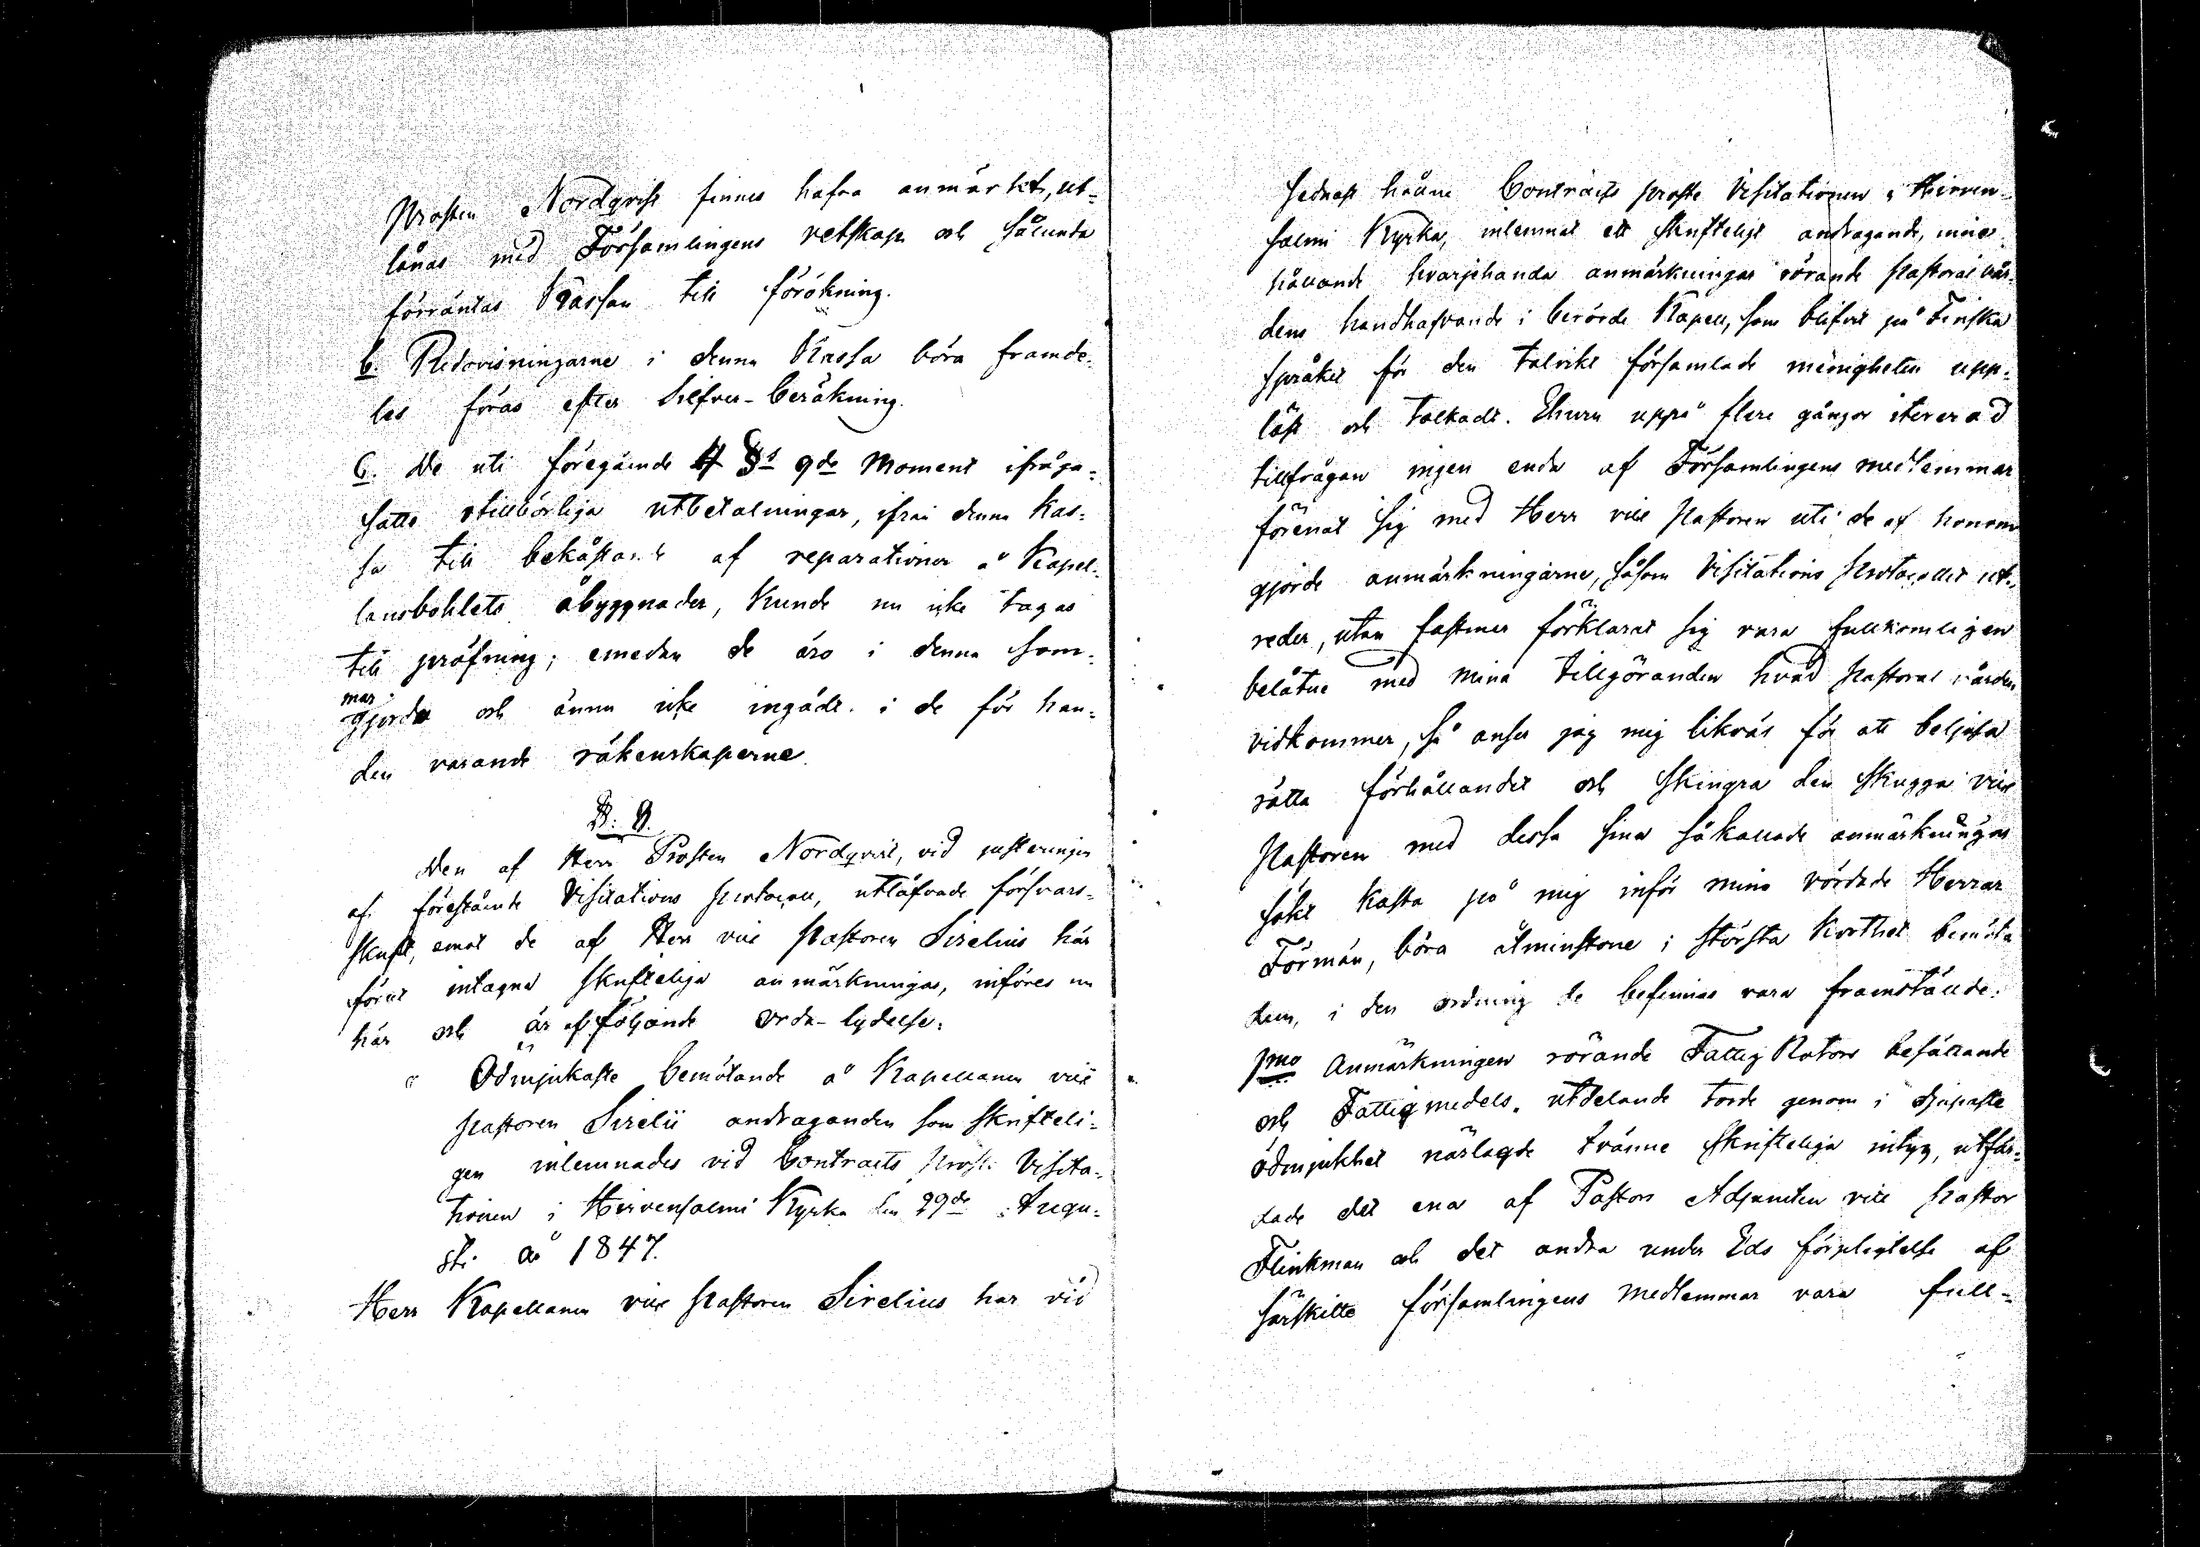 Prosten Nordqvist finnes hafva anmärkt, ut-
lånas med Församlingens vetskap och sålunda
förräntas Kassan till förökning.
b. Redovisningarne i denna Kassa böra framde-
les föras efter Silfver-beräkning.
C. De uti föregående § 9de Moment ifråga-
satte otillbörliga utbetalningar, ifrån denna Kas-
sa till bekåstande af reparationer å Kapel-
lansbohlets åbyggnader, kunde nu icke tagas
till pröfning; emedan de äro i denna som-
mar
gjorda och ännu icke ingådt i de för han-
den varande räkenskaperne.
§. 9.
Den af Herr Prosten Nordqvist, vid justeringen
af förestående Visitations protocoll, utlofvade försvars-
skrift, emot de af Herr vice Pastoren Sirelius här
förut intagna skrifteliga anmärkningar, införes nu
här och är af följande orda-lydelse:
" Ödmjukaste bemötande å Kapellanen vice
Pastoren Sirelii andraganden som skrifteli-
gen inlemnades vid Contracts Prosts Visita-
tionen i Hirvensalmi Kyrka den 29de Augu-
sti år 1847.
Herr Kapellanen vice Pastoren Sirelius har vid
sednast hållne Contracts prosts Visitationen i Hirven-
salmi Kyrka, inlemnat ett skrifteligt andragande, inne-
hållande hvarjehanda anmärkningar rörande Pastoral vår-
dens handhafvande i berörde Kapell, som blifvit på Finska
språket för den talrikt församlade menigheten upp-
läst och tolkadt. Ehuru uppå flere gånger itererad
tillfrågan ingen enda af Församlingens medlemmar
förenat sig med Herr vice Pastoren uti de af honom
gjorde anmärkningarne, såsom Visitations Protocollet ut-
reder, utan fastmer förklarat sig vara fullkomligen
belåtne med mina tillgöranden hvad Pastoral vården
vidkommer, så anser jag mig likväl för att belysa
rätta förhållandet och skingra den skugga vice
Pastoren med dessa sina såkallade anmärkningar
sökt kasta på mig inför mina vördade Herrar
Förmän, böra åtminstone i största korthet bemöta
dem, i den ordning de befinnas vara framstälde:
1mo Anmärkningen rörande Fattig Rotors besättande
och Fattigmedels utdelande torde genom i djupaste
ödmjukhet närlagde tvänne skrifteliga intyg, utfär-
dade det ena af Pastors Adjuncten vice Pastor
Flinkman och det andra under Eds förpligtelse af
särskilte församlingens medlemmar vara full-